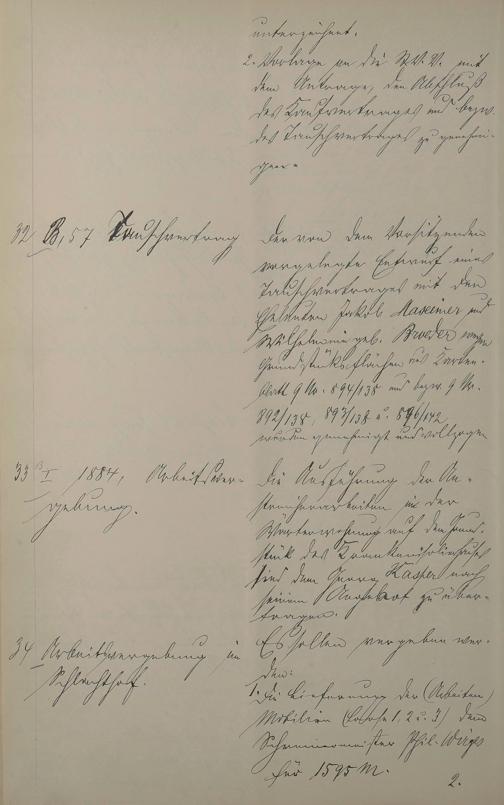 unterzeichnet.
2. Vorlage an die St.V.V. mit
dem Antrage, den Abschluß
des Kaufvertrages und bezw.
des Tauschvertrages zu genehmi-
gen.
32 B, 57 Tauschvertrag
Der von dem Vorsitzenden
vorgelegte Entwurf eines
Tauschvertrages mit den
Eheleuten Jakob und
Wilhelmine geb. Broeder wegen
Grundstücksflächen aus Karten-
blatt 9 Nr. 894/138 und bezw. 9 Nr.
892/138, 893/138 u. 896/142
wurden genehmigt und vollzogen
33 I 1884, Arbeitsver-
gebung.
Die Ausführung der An-
streicherarbeiten in der
Wärterwohnung auf dem Grund-
stück des Krankenisolirhauses
sind dem Georg Kaster nach
seinem Angebot zu über-
tragen.
34 Arbeitsvergebung im
Schlachthof.
Es sollen vergeben wer-
den:
1. die Lieferung der (Arbeiten)
Mobilien (Loose 1, 2 u. 3) dem
Schreinermeister Phil. Wirges
für 1595 M.
2.